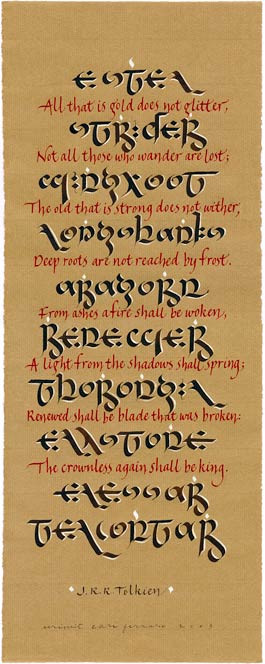 ESTEL
All that is gold does not glitter,
STRIDER
Not all those who wander are lost;
WINGFOOT
The old that is strong does not wither,
LONGSHANKS
Deep roots are not reached by frost.
ARAGORN
From ashes a fire shall be woken,
RENEWER
A light from the shadows shall spring;
THORONGIL
Renewed shall be blade that was broken:
ELFSTONE
The crownless again shall be king.
ELESSAR
TELCONTAR
J.R.R. Tolkien